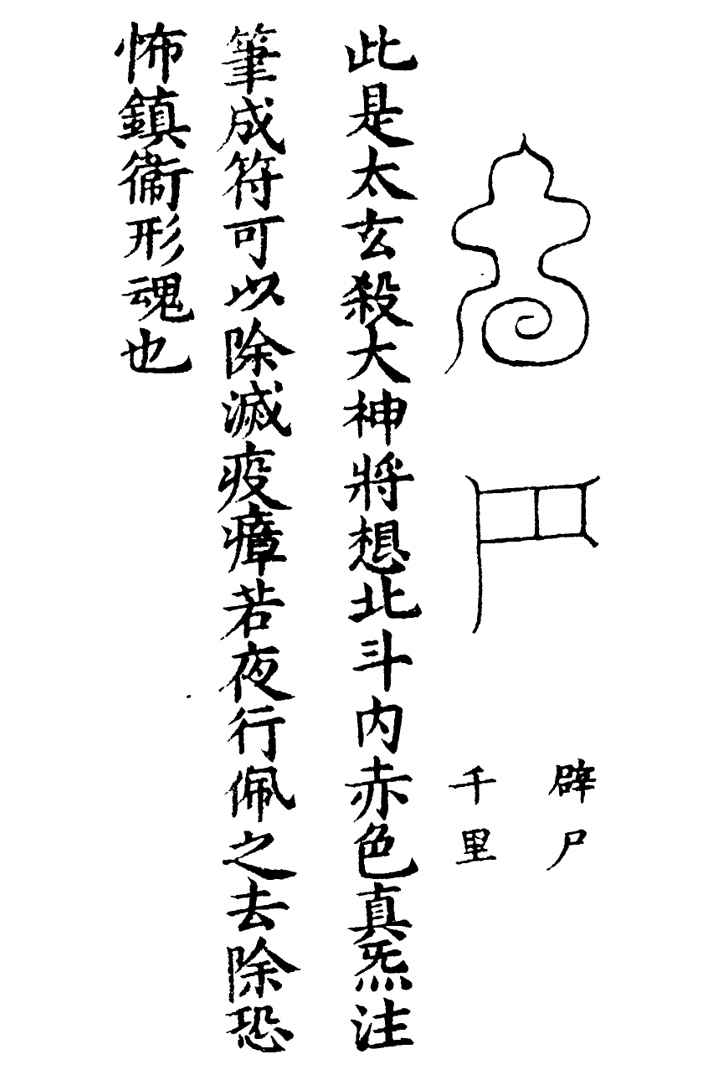 辟尸
千里
此是太玄殺大神將想北斗內赤色真炁注
筆成符可以除滅疫瘴若夜行佩之去除恐
怖鎮衞形魂也